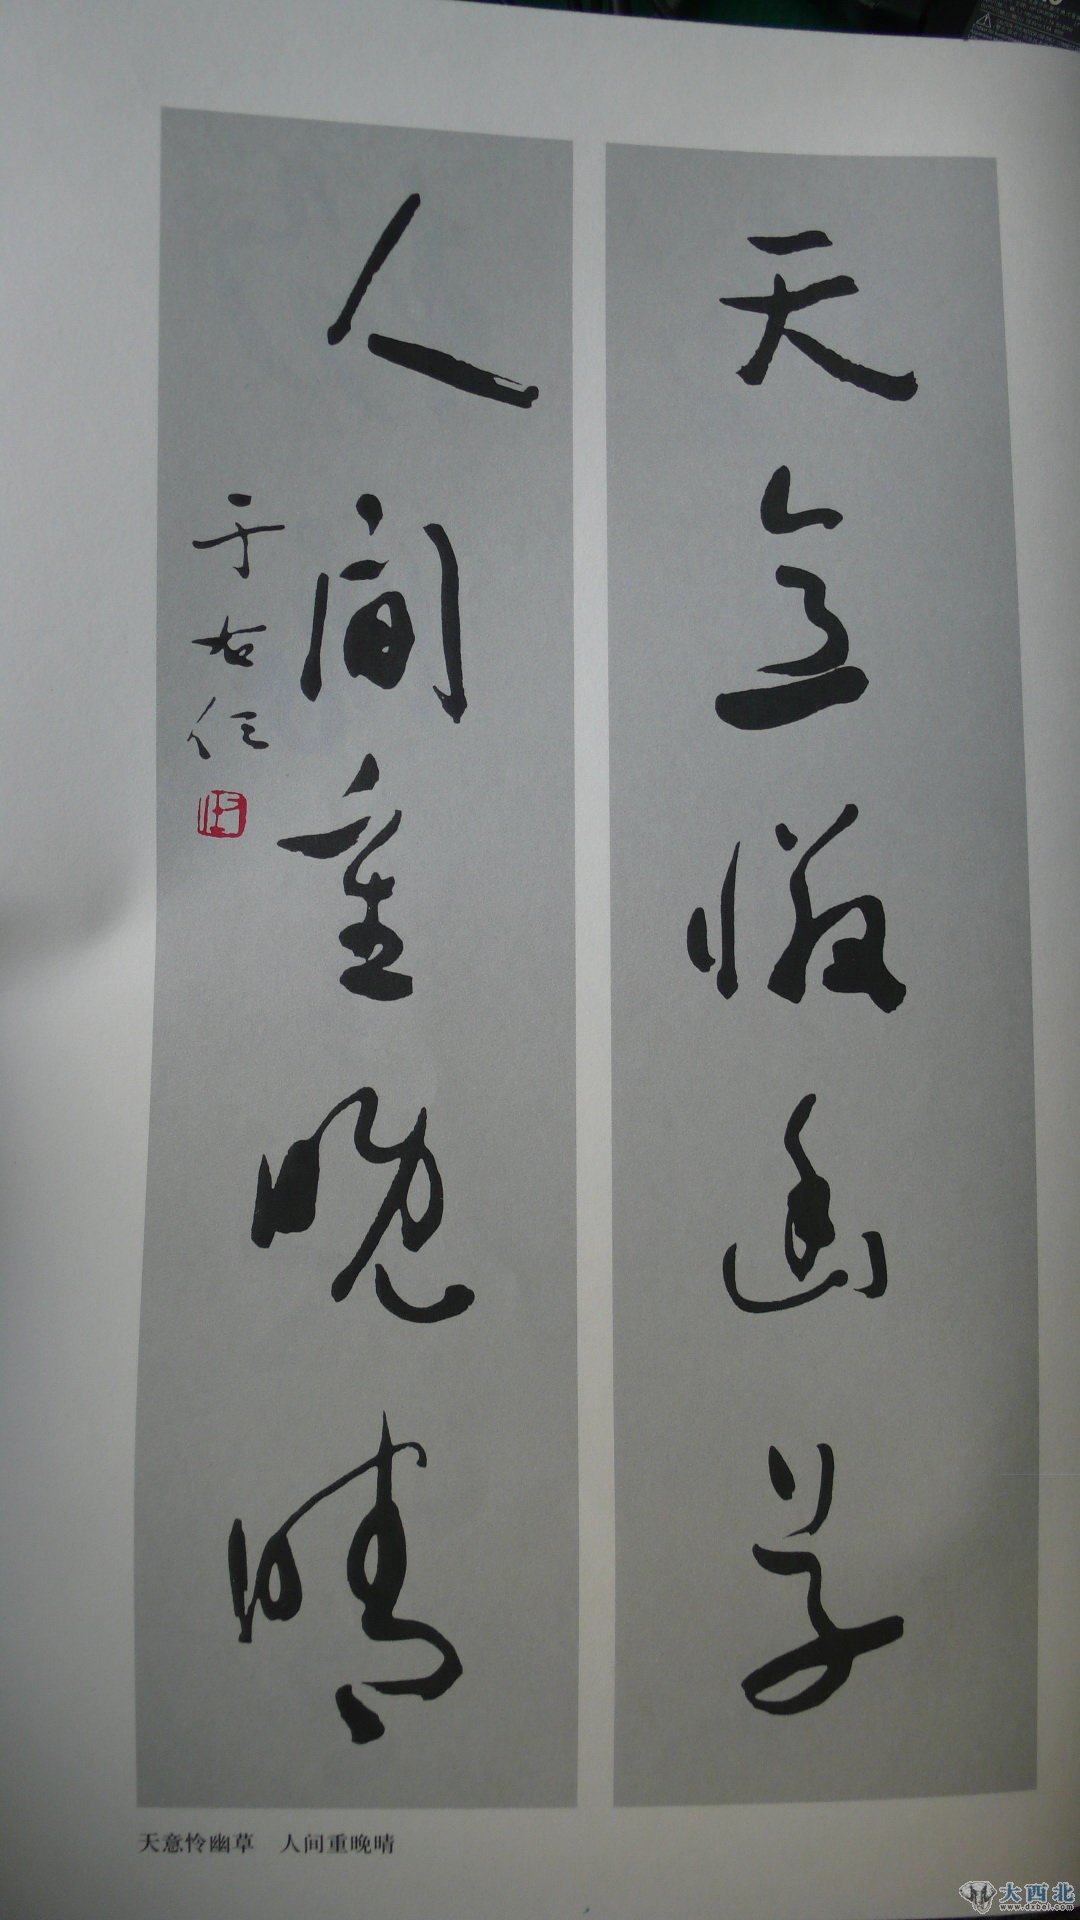 天意憐幽草
人间重晚晴
于右任
天意怜幽草 人间重晚晴
大西北
www.dxbei.com